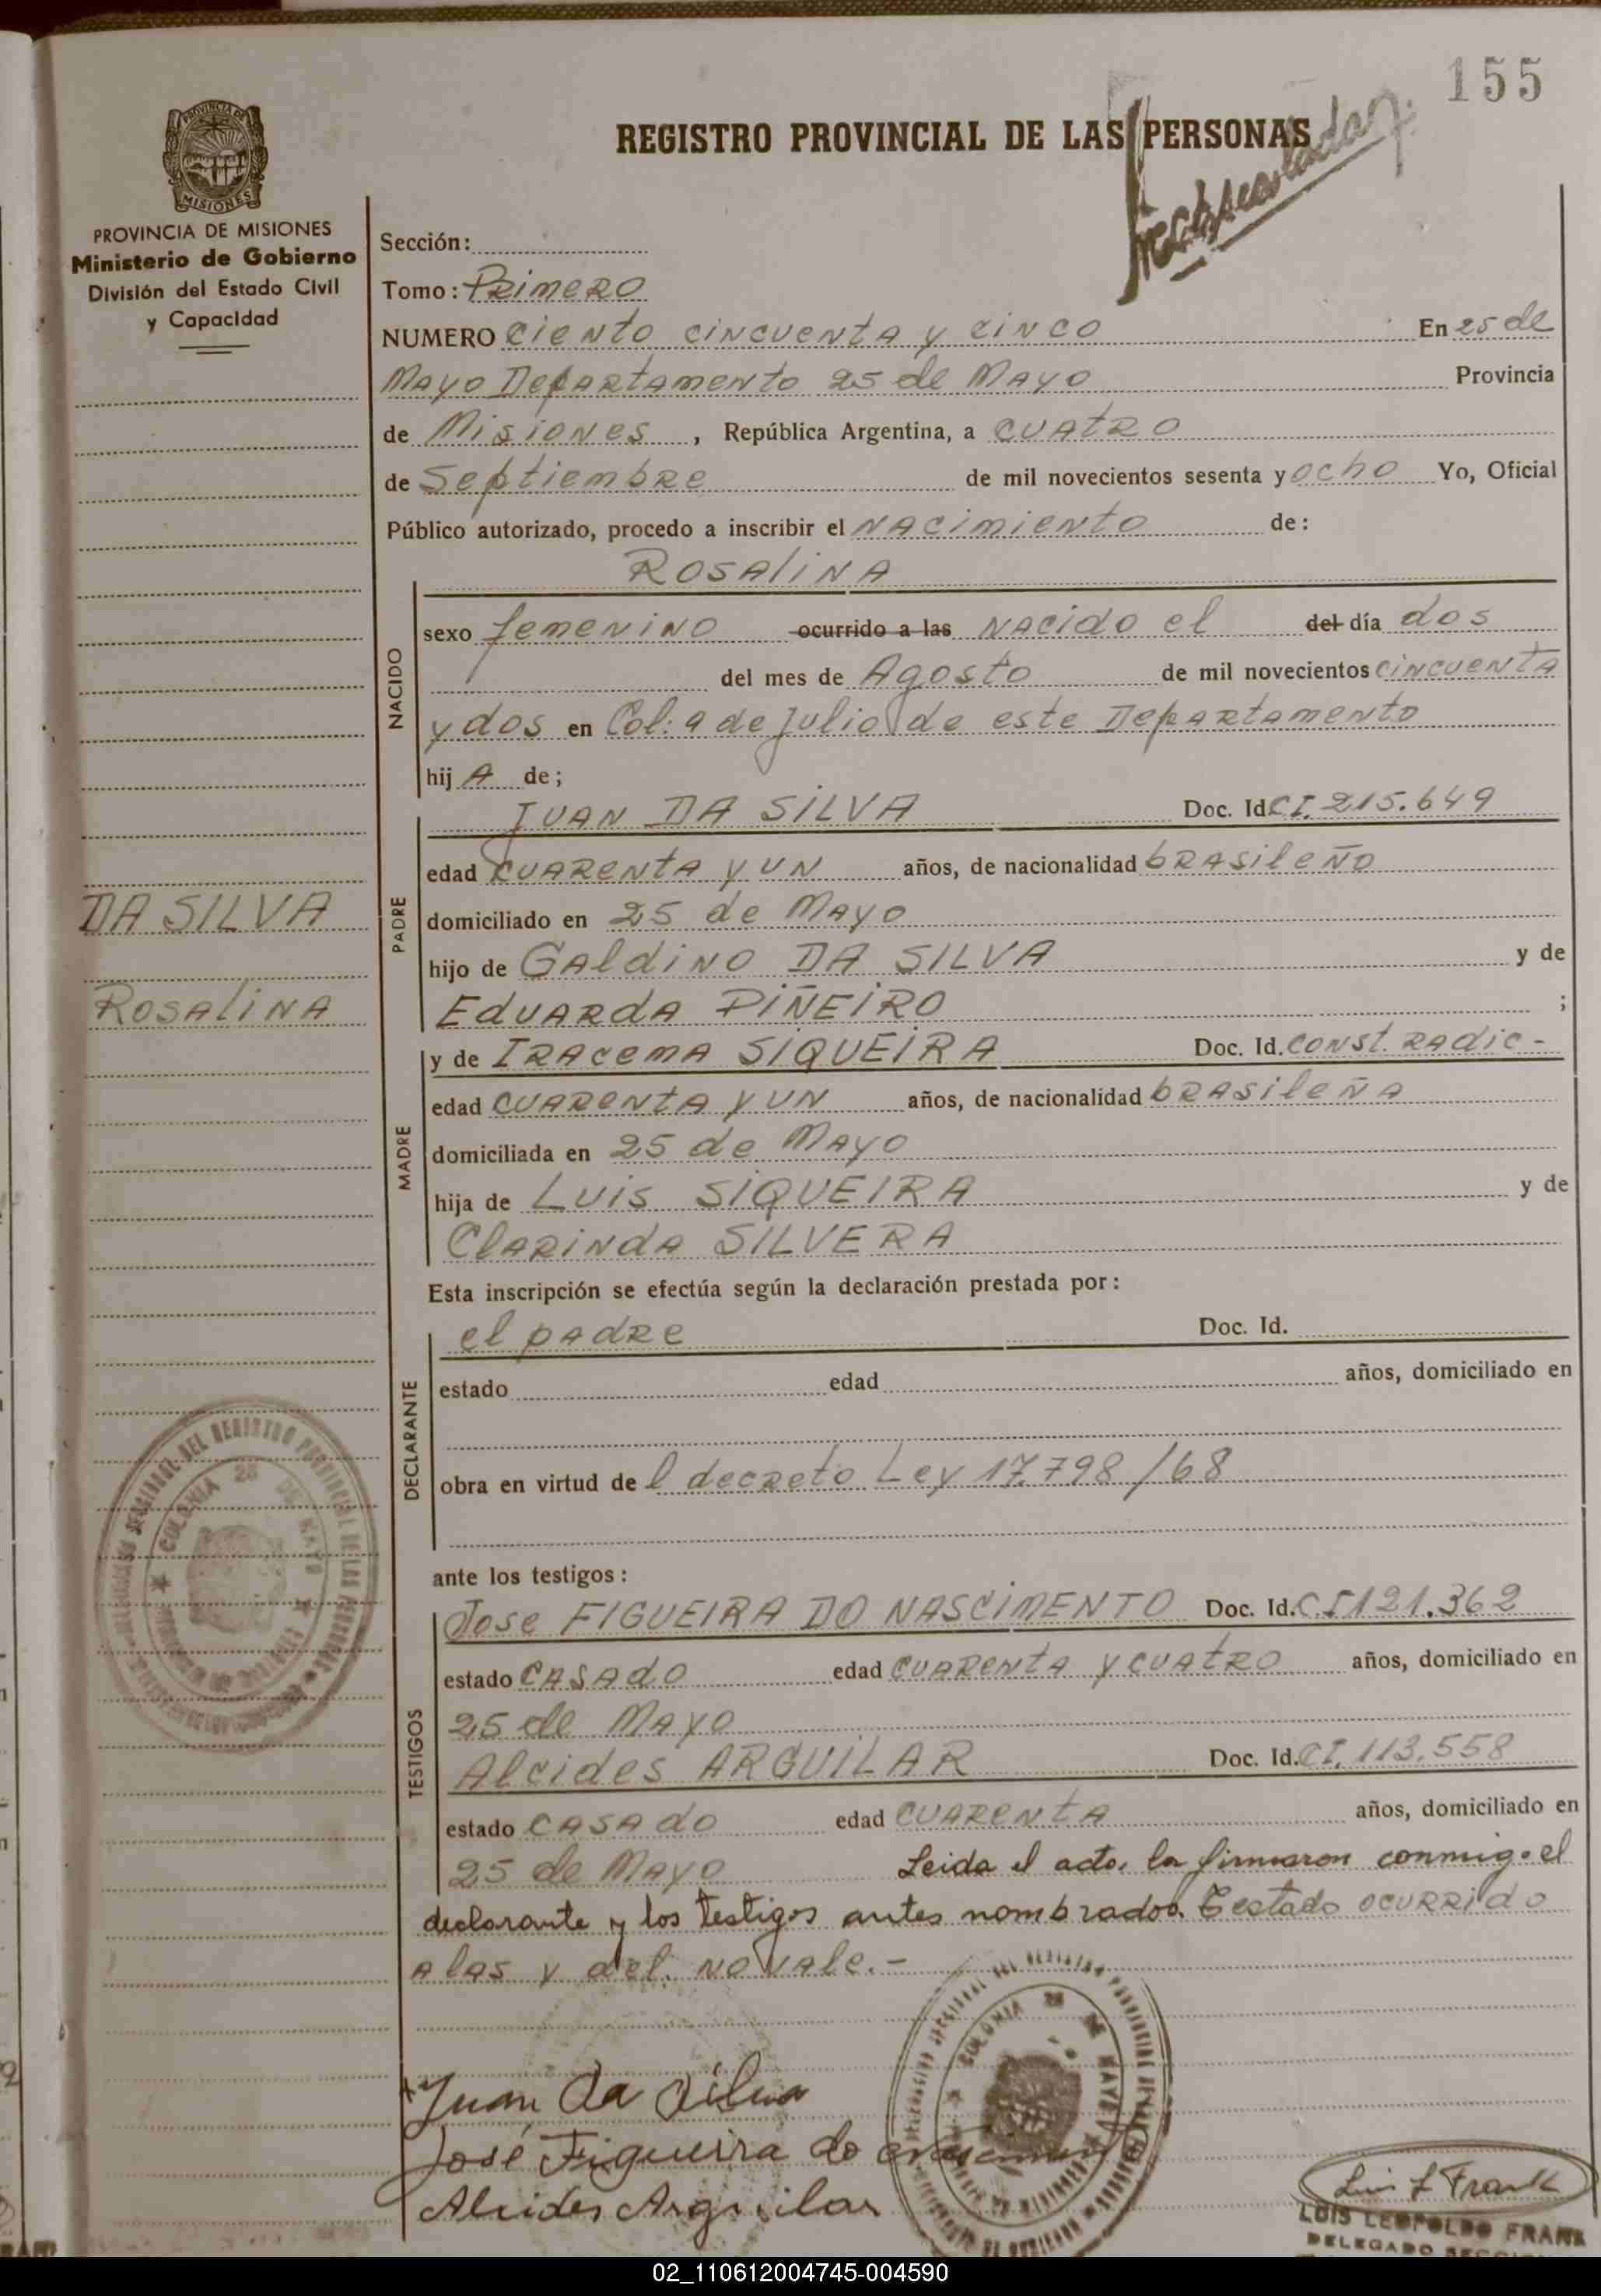 155
REGISTRO PROVINCIAL DE LAS PERSONAS
PROVINCIA DE MISIONES
MISIONES
PROVINCIA DE MISIONES
Ministerio de Gobierno
División del Estado Civil
y Capacidad
Sección:
Tomo: Primero
NUMERO ciento cincuenta y cinco En 25 de
Mayo Departamento 25 de Mayo Provincia
de Misiones, República Argentina, a cuatro
de Septiembre de mil novecientos sesenta y ocho Yo, Oficial
Público autorizado, procedo a inscribir el nacimiento de:
NACIDO
Rosalina
sexo femenino ocurrido a las nacido el del día dos
del mes de Agosto de mil novecientos cincuenta
y dos en Col: 9 de Julio de este Departamento
hij A de;
PADRE
JUAN DA SILVA Doc. Id. CI. 215.649
edad cuarenta y un años, de nacionalidad brasileño
domiciliado en 25 de Mayo
hijo de Galdino DA SILVA y de
Eduarda PIÑEIRO ;
DA SILVA
Rosalina
MADRE
y de Iracema SIQUEIRA Doc. Id. Const. Radic-
edad cuarenta y un años, de nacionalidad brasileña
domiciliada en 25 de Mayo
hija de Luis SIQUEIRA y de
Clarinda SILVERA
Esta inscripción se efectúa según la declaración prestada por:
DECLARANTE
el padre Doc. Id.
estado edad años, domiciliado en
obra en virtud de l decreto Ley 17.798/68
ante los testigos:
TESTIGOS
Jose FIGUEIRA DO NASCIMENTO Doc. Id. CI 121.362
estado casado edad cuarenta y cuatro años, domiciliado en
25 de Mayo
Alcides ARGUILAR Doc. Id. CI. 113.558
estado casado edad cuarenta años, domiciliado en
25 de Mayo Leida el acta, la firmaron conmigo el
declarante y los testigos antes nombrados. Testado ocurrido
a las y del. no vale.-
COLONIA 25 DE MAYO
COLONIA 25 DE MAYO
Juan da Silva
José Figueira do
Alcides Arguilar
Luis L Frank
LUIS LEOPOLDO FRANK
DELEGADO
02_110612004745-004590